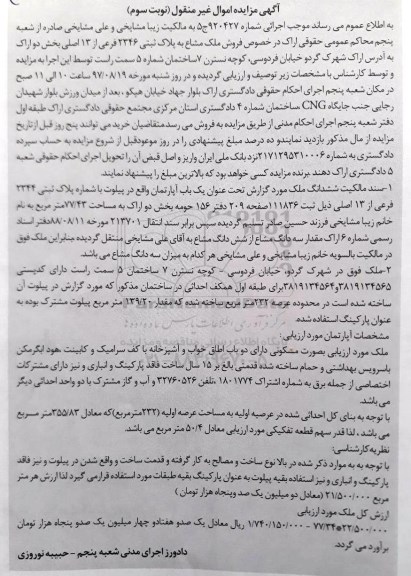 آگهی مزایده اموال غیر منقول (نوبت سوم)
به اطلاع عموم می رساند موجب اجرائی شماره ۹۲۰۴۲۷ج۵ به مالکیت زیبا مشایخی و علی مشایخی صادره از شعبه
پنجم محاکم عمومی حقوقی اراک در خصوص فروش ملک مشاع به پلاک ثبتی ۲۳۴۶ فرعی از ۱۳ اصلی بخش دو اراک
به آدرس اراک شهرک گردو خیابان فردوسی، کوچه نسترن ۷ساختمان شماره ۵ سمت راست توسط این اجرا به مزایده
و توسط کارشناس با مشخصات زیر توصیف و ارزیابی گردیده و در روز شنبه مورخه ۹۷/۰۸/۱۹ ساعت ۱۰ الی ۱۱ صبح
در مکان شعبه پنجم اجرای احکام حقوقی دادگستری اراک بلوار جهاد خیابان هپکو ، بعد از میدان ورزش بلوار شهیدان
رجایی جنب جایگاه CNG ساختمان شماره ۴ دادگستری استان مرکزی مجتمع حقوقی دادگستری اراک طبقه اول
دفتر شعبه پنجم اجرای احکام مدنی از طریق مزایده به فروش می رسد متقاضیان خرید می توانند پنج روز قبل ازتاریخ
مزایده از مال مذکور بازدید نمایندو ده درصد مبلغ پیشنهادی را در روز موعودقبل از شروع مزایده به حساب سپرده
دادگستری به شماره ۲۱۷۱۲۹۵۳۱۰۰۰۶نزد بانک ملی ایران واریز و اصل فیش آن را تحویل اجرای احکام حقوقی شعبه
۵ دادگستری اراک دهند برنده مزایده کسی خواهد بود که بالاترین مبلغ را پیشنهاد نمایند.
۱-سند مالکیت ششدانگ ملک مورد گزارش تحت عنوان یک باب آپارتمان واقع در پیلوت با شماره پلاک ثبتی ۲۳۴۴
فرعی از ۱۳ اصلی ذیل ثبت ۱۱۱۸۳۶ صفحه ۲۰۹ دفتر ۱۵۶ حومه بخش دو اراک به مساحت ۷۷/۴۳متر مربع به نام
خانم زیبا مشایخی فرزند حسین صادر و تسلیم گردیده سپس برابر سند انتقال ۲۱۳۷۰۱ مورخه ۸۸/۰۸/۱۱دفتر اسناد
رسمی شماره ۶ اراک مقدار سه دانگ مشاع از شش دانگ مشاع به آقای علی مشایخی منتقل گردیده بنابراین ملک فوق
در مالکیت بالسویه خانم زیبا مشایخی و علی مشایخی هر کدام به میزان سه دانگ مشاع می باشد.
۲-ملک فوق در شهرک گردو، خیابان فردوسی - کوچه نسترن ۷ ساختمان ۵ سمت راست دارای کدپستی
۳۸۱۹۱۳۴۵۶۵و۳۸۱۹۱۳۴۵۶۴برای طبقه اول همکف احداثی در ساختمان مذکور که مورد گزارش در پیلوت آن
ساخته شده است در محدوده عرصه ۲۳۲متر مربع ساخته شده که مقدار ۱۳۹/۲۰ متر مربع پیلوت مشترک بوده به
عنوان پارکینگ استفاده شده
مشخصات آپارتمان مورد ارزیابی:
ملک مورد ارزیابی بصورت مسکونی دارای دو باب اطاق خواب و آشپزخانه با کف سرامیک و کابینت ،هود ابگرمکن
باسرویس بهداشتی و حمام ساخته شده قدمتی بالغ بر ۱۵ سال ساخت فاقد پارکینگ و انباری و نیز دارای مشترکات
اختصاصی از جمله برق به شماره اشتراک ۱۸۰۱۷۷۴ ،تلفن ۳۲۷۶۰۵۲۶ و آب و گاز مشترک با دو واحد احداثی دیگر
می باشد.
با توجه به بنای کل احداثی شده در عرصه اولیه به مساحت عرصه اولیه (۲۳۲مترمربع)که معادل ۳۵۵/۸۳متر مربع
می باشد ، لذا قدر سهم قطعه تفکیکی مورد ارزیابی معادل ۵۰/۴ متر مربع می باشد.
نظریه کارشناسی:
با توجه به به موارد ذکر شده در بالا نوع ساخت و مصالح به کار گرفته و قدمت ساخت و واقع شدن در پیلوت و نیز فاقد
پارکینگ و انباری و نیز استفاده بقیه پیلوت به عنوان پارکینگ بقیه طبقات مورد استفاده قرارمی گیرد لذا ارزش هر متر
مربع ۲۱/۵۰۰/۰۰۰ (معادل دو میلیون یک صد وپنجاه هزار تومان )
ارزش کل ملک مورد ارزیابی
۷۷/۳۴*۲۲/۵۰۰/۰۰۰ - ۱/۷۴۰/۱۵۰/۰۰۰ ریال معادل یک صدو هفتادو چهار میلیون یک صدو پنجاه هزار تومان
برآورد می گردد.
دادورز اجرای مدنی شعبه پنجم - حبیبه نوروزی